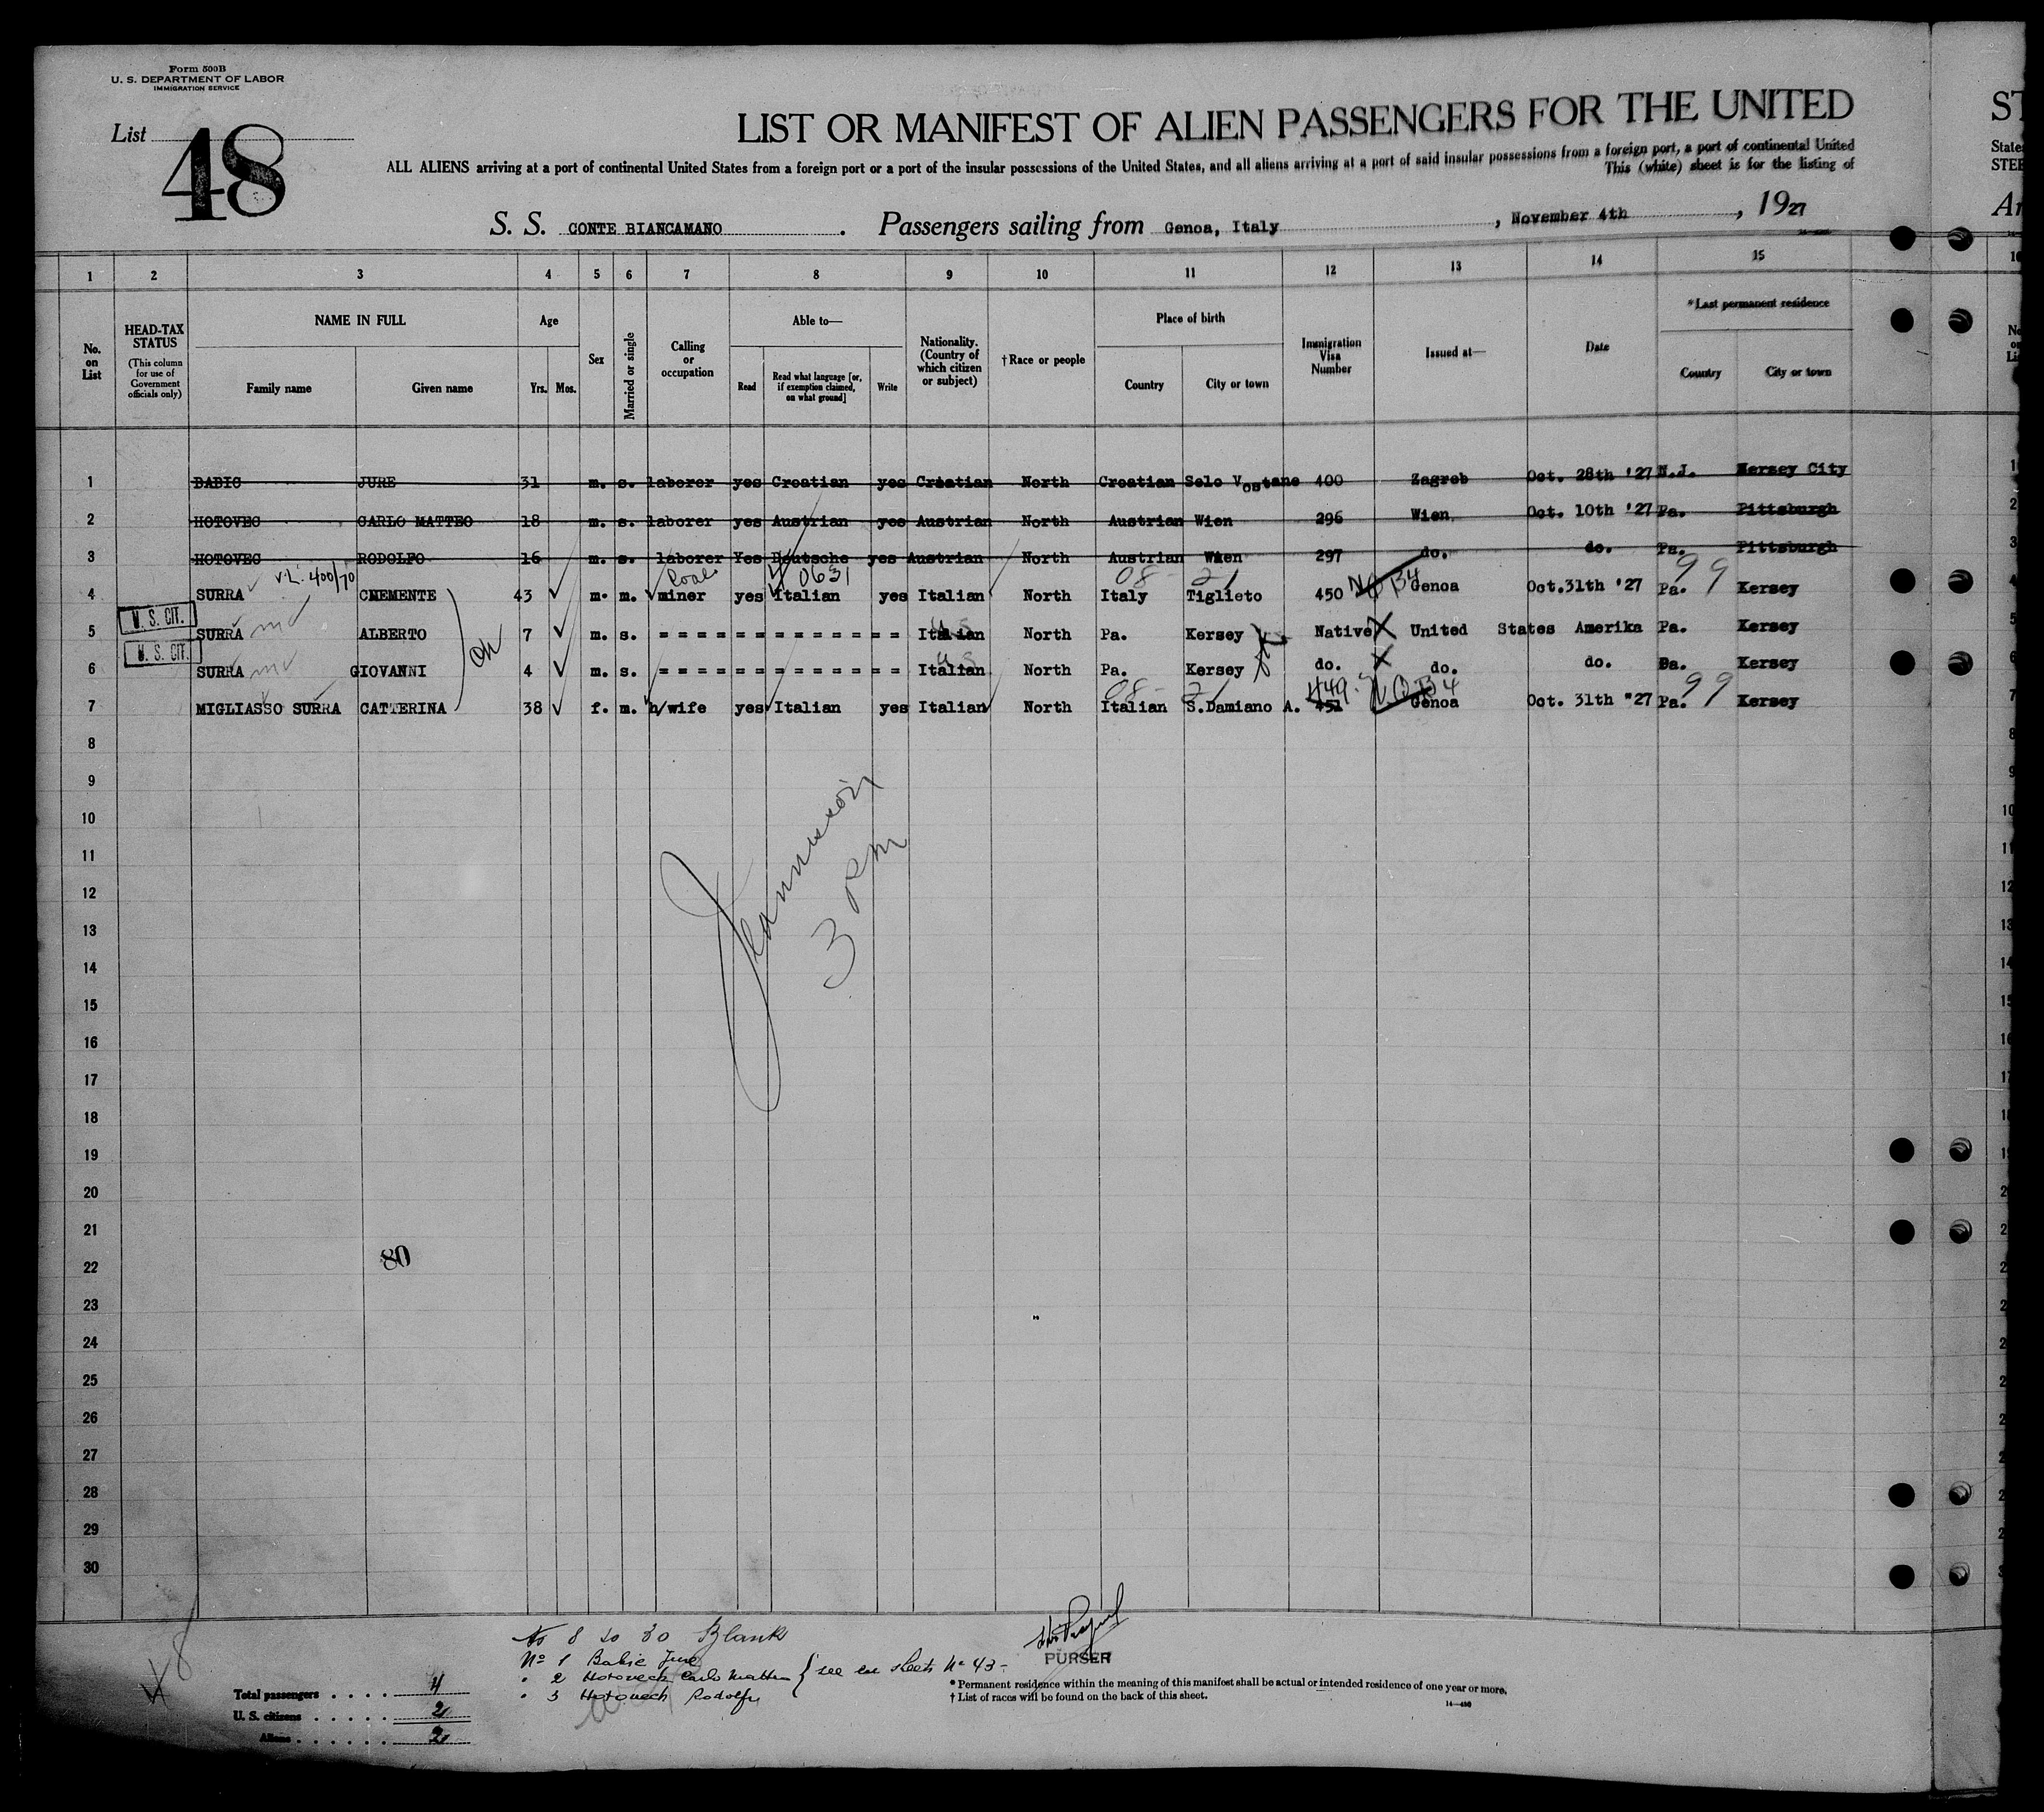 Form 500B
U. S. DEPARTMENT OF LABOR
IMMIGRATION SERVICE
List 48
LIST OR MANIFEST OF ALIEN PASSENGERS FOR THE UNITED
ALL ALIENS arriving at a port of continental United States from a foreign port or a port of the insular possessions of the United States, and all aliens arriving at a port of said insular possessions from a foreign port, a port of continental United
This (white) sheet is for the listing of
S. S. CONTE BIANCAMANO. Passengers sailing from Genoa, Italy, November 4th, 1927
1 2 3 4 5 6 7 8 9 10 11 12 13 14 15
No. on List
HEAD-TAX STATUS (This column for use of Government officials only)
NAME IN FULL
Family name
Given name
Age
Yrs. Mos.
Sex
Married or single
Calling or occupation
Able to—
Read
Read what language [or, if exemption claimed, on what ground]
Write
Nationality. (Country of which citizen or subject)
† Race or people
Place of birth
Country
City or town
Immigration Visa Number
Issued at—
Date
* Last permanent residence
Country
City or town
1 BABIC JURE 31 m. s. laborer yes Croatian yes Croatian North Croatian Selo Vostane 400 Zagreb Oct. 28th '27 N.J. Kersey City
2 HOTOVEC CARLO MATTEO 18 m. s. laborer yes Austrian yes Austrian North Austrian Wien 296 Wien Oct. 10th '27 Pa. Pittsburgh
3 HOTOVEC RODOLFO 16 m. s. laborer Yes Deutsche yes Austrian North Austrian Wien 297 do. do. Pa. Pittsburgh
V.L. 400/70 Coal 0631 08- 21 99
4 SURRA CMEMENTE 43 m. m. miner yes Italian yes Italian North Italy Tiglieto 450 NQB4 Genoa Oct.31th '27 Pa. Kersey
U. S. CIT.
5 SURRA ALBERTO 7 m. s. = = = = = = = = = = = = = = Italian North Pa. Kersey Native United States Amerika Pa. Kersey
U. S. CIT.
6 SURRA GIOVANNI 4 m. s. = = = = = = = = = = = = = = Italian North Pa. Kersey do. do. do. Pa. Kersey
08- 21 449 NQB4 99
7 MIGLIASSO SURRA CATTERINA 38 f. m. h/wife yes Italian yes Italian North Italian S.Damiano A. 451 Genoa Oct. 31th "27 Pa. Kersey
8
9
10
11
12
13
14
15
16
17
18
19
20
21
22
23
24
25
26
27
28
29
30
3 pm
80
No 8 to 30 Blank
Nº 1 Babic Jure
" 2 Hotovech Carlo Matteo } see on sheets Nº 43-
" 3 Hotovech Rodolfo
PURSER
Total passengers . . . . 4
U. S. citizens . . . . . 2
Aliens . . . . . . 2
* Permanent residence within the meaning of this manifest shall be actual or intended residence of one year or more.
† List of races will be found on the back of this sheet.